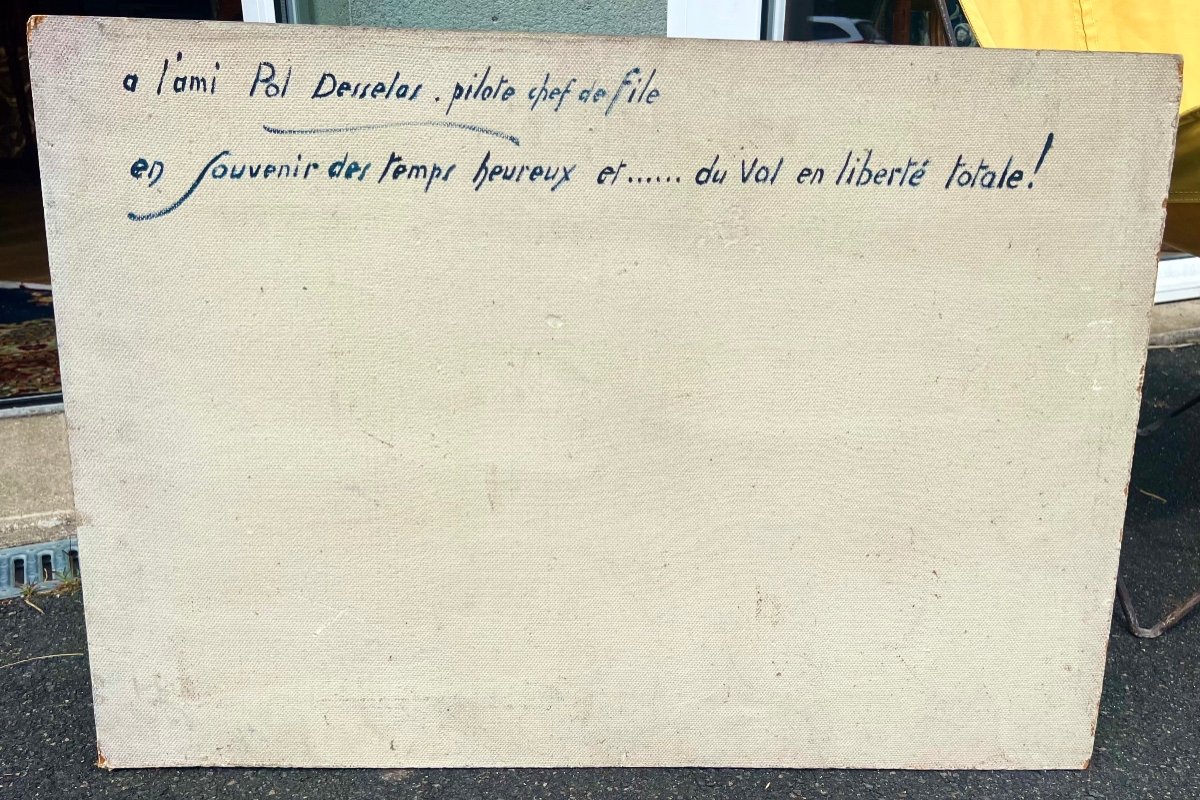 a l'ami Pol Desselas . pilote chef de file
en souvenir des temps heureux et...... du Val en liberté totale!